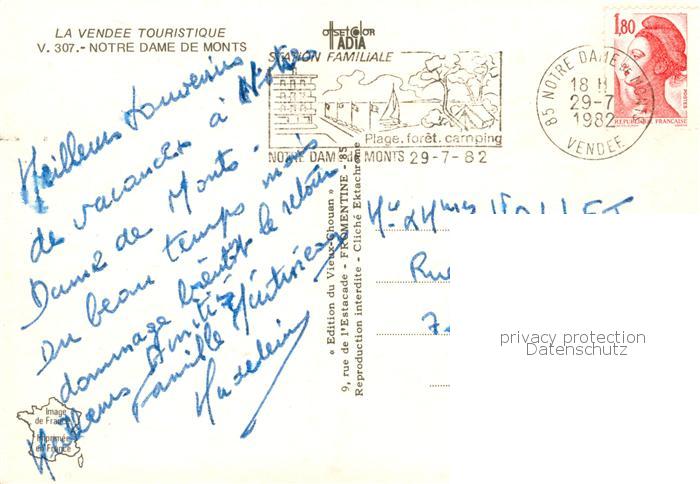 LA VENDEE TOURISTIQUE
V. 307.- NOTRE DAME DE MONTS
offset color
IADIA
STATION FAMILIALE
Plage. forêt. camping
NOTRE DAME de MONTS 29-7-82
85 NOTRE DAME DE MONTS
18 H
29-7
1982
VENDEE
1,80
POSTES
REPUBLIQUE FRANCAISE
Meilleurs Souvenirs
de vacances à Notre
Dame de Monts.
Du beau temps mais
dommage bientôt le retour
Meilleures Amitiés
Famille
Madeleine
« Edition du Vieux-Chouan »
9, rue de l'Estacade - FROMENTINE - 85
Reproduction interdite - Cliché Ektachrome
Mr & Mme
Rue
privacy protection
Datenschutz
Image
de France
Imprimée
en France